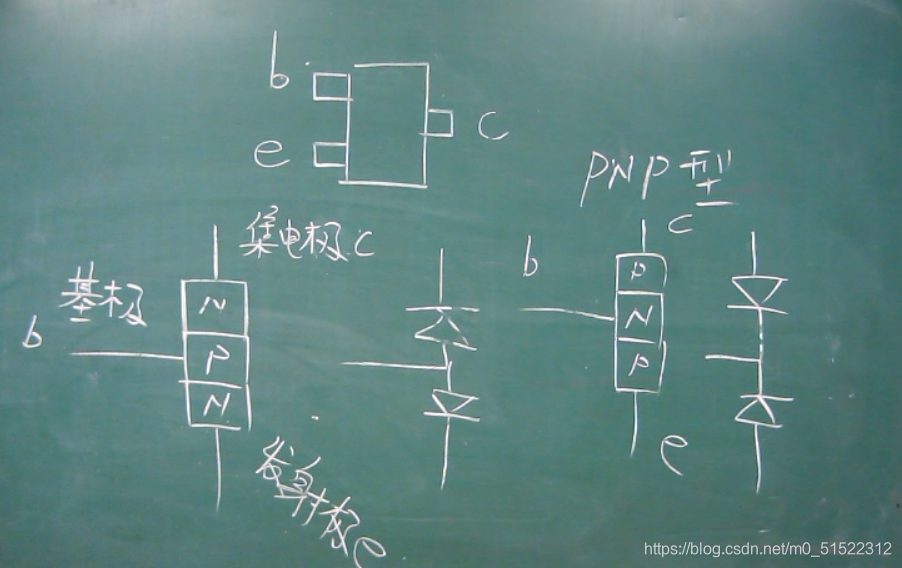 b
c
e
PNP型
集电极 c
c
b
基极
b
N
P
N
P
N
P
发射极 e
e
https://blog.csdn.net/m0_51522312